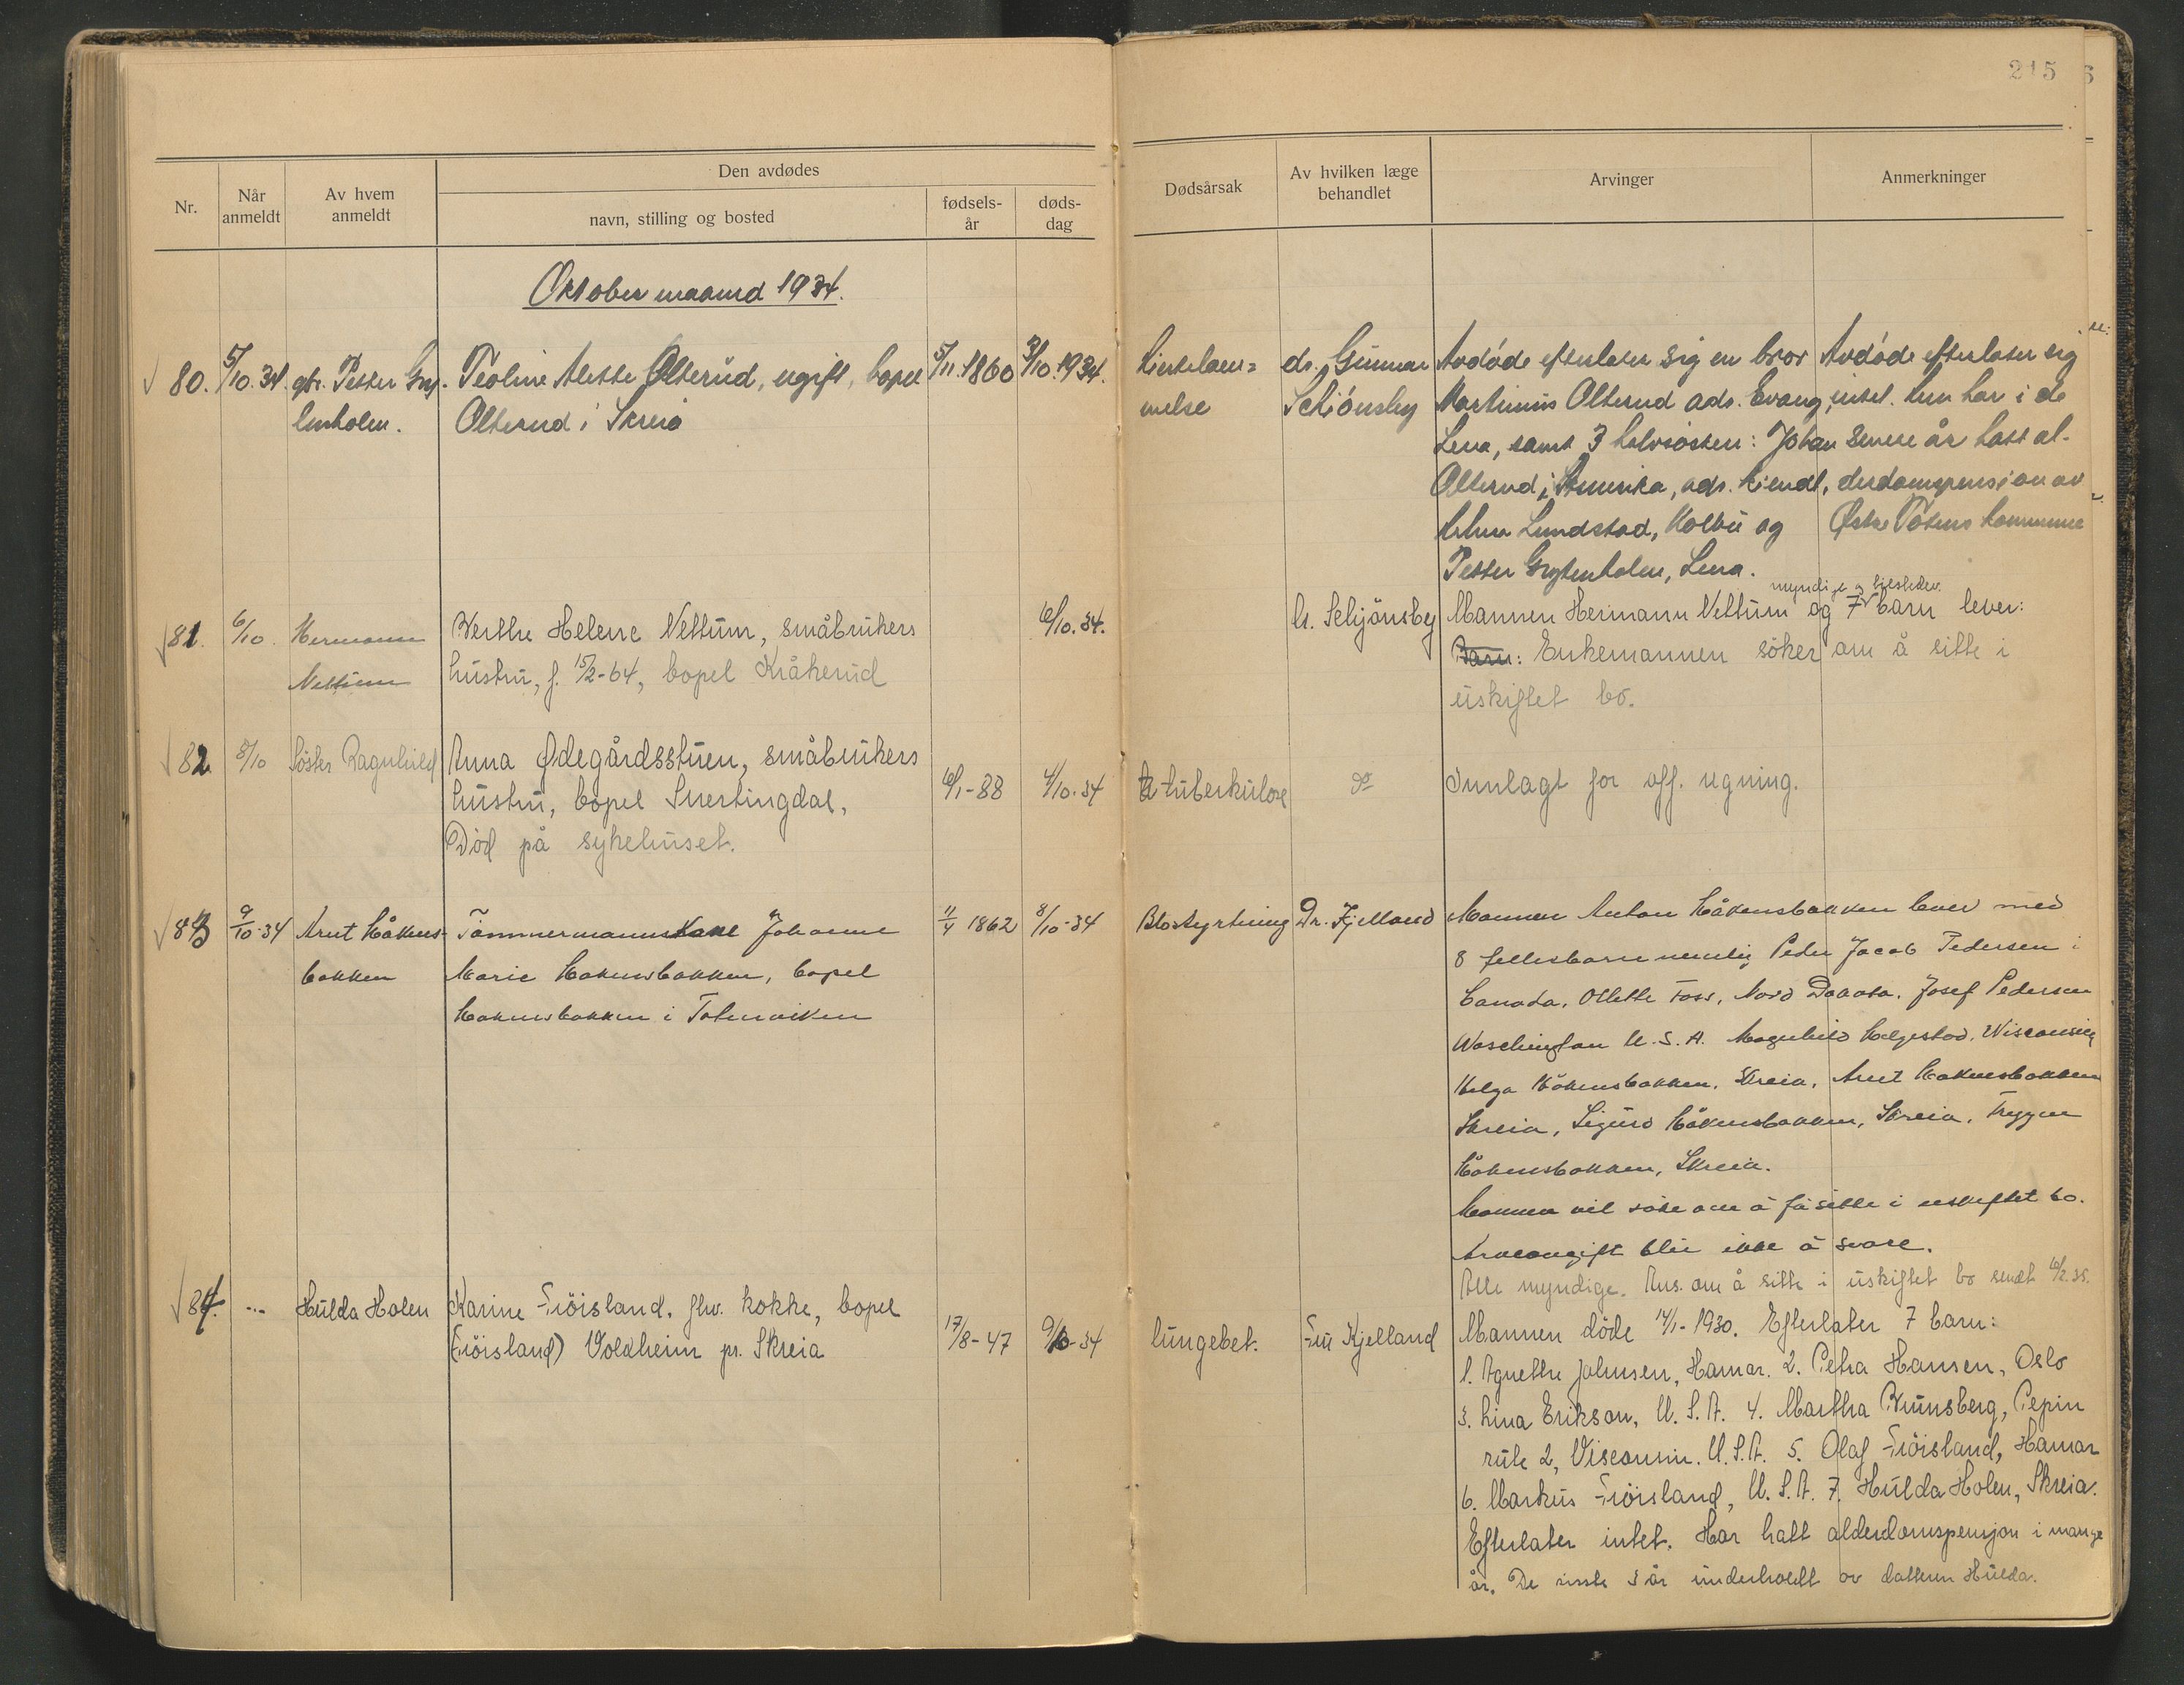 215
6
Nr.
Når anmeldt
Av hvem anmeldt
Den avdødes
navn, stilling og bosted
fødsels-år
døds-dag
Dødsårsak
Av hvilken læge behandlet
Arvinger
Anmerkninger
Oktober maaned 1934.
80. 5/10.34. gbr. Petter Gry- Teoline Alette Olterud, ugift, bopel 5/11.1860 3/10.1934.
tenholen. Olterud i Skreia
Hjertelam=
melse
dr. Gunnar
Schjønsby
Avdøde efterlater sig en bror
Martinius Olterud adr. Evang,
Lena, samt 3 halvsøsken: Johan
Olterud i Amerika, adr. ukjendt,
Lundstad, Kolbu og
Petter Grytenholen, Lena.
Avdøde efterlater sig
intet. Hun har i de
senere år hatt al-
derdomspension av
Østre Totens kommune
81. 6/10. Hermann Berthe Helene Nettum, småbrukers 6/10.34.
Nettum hustru, f. 15/2-64, bopel Kråkerud
G. Schjönsby Mannen Hermann Nettum og 7 barn lever:
myndige og tilstede
Barn: Enkemannen söker om å sitte i
uskiftet bo.
82 8/10 Söster Ragnhild Anna Ødegårdsstuen, småbrukers
hustru, bopel Snertingdal, 6/1-88 4/10.34
Död på sykehuset.
tuberkulose do Innlagt for off. regning.
83 9/10-34 Arnt Håkens- Tömmermannskone Johanne 11/4 1862 8/10-34
bakken Marie Hakensbakken, bopel
Hakensbakken i Totenviken
Blodstyrtning Dr. Kjelland Mannen Anton Håkensbakken lever med
8 fellesbarn nemlig Peder Jacob Pedersen i
Canada, Ollette Foss, Nord Dakota. Josef Pedersen
Waschington U.S.A. Magnhild Helgestad, Wisconsin,
Helga Håkensbakken, Skreia, Arnt Hakensbakken
Skreia, Sigurd Håkensbakken, Skreia, Trygve
Håkensbakken, Skreia.
Mannen vil söke om å få sitte i uskiftet bo.
Arveavgift blir ikke å svare.
Alle myndige. Ans. om å sitte i uskiftet bo sendt 6/2.35.
84. -.. Hulda Holen Karine Fröisland, fhv. kokke, bopel
(Fröisland) Voldheim pr. Skreia 17/8-47 9/10-34
lungebet. Fru Kjelland Mannen döde 14/1-1930. Efterlater 7 barn:
1. Agnethe Johnsen, Hamar. 2. Petra Hansen, Oslo
3. Lina Erikson, U.S.A. 4. Martha Brunsberg, Pepin
rute 2, Visconsin. U.S.A. 5. Olaf Fröisland, Hamar
6. Markus Fröisland, U.S.A. 7. Hulda Holen, Skreia.
Efterlater intet. Har hatt alderdomspensjon i mange
år. De siste 3 år underholdt av datteren Hulda.